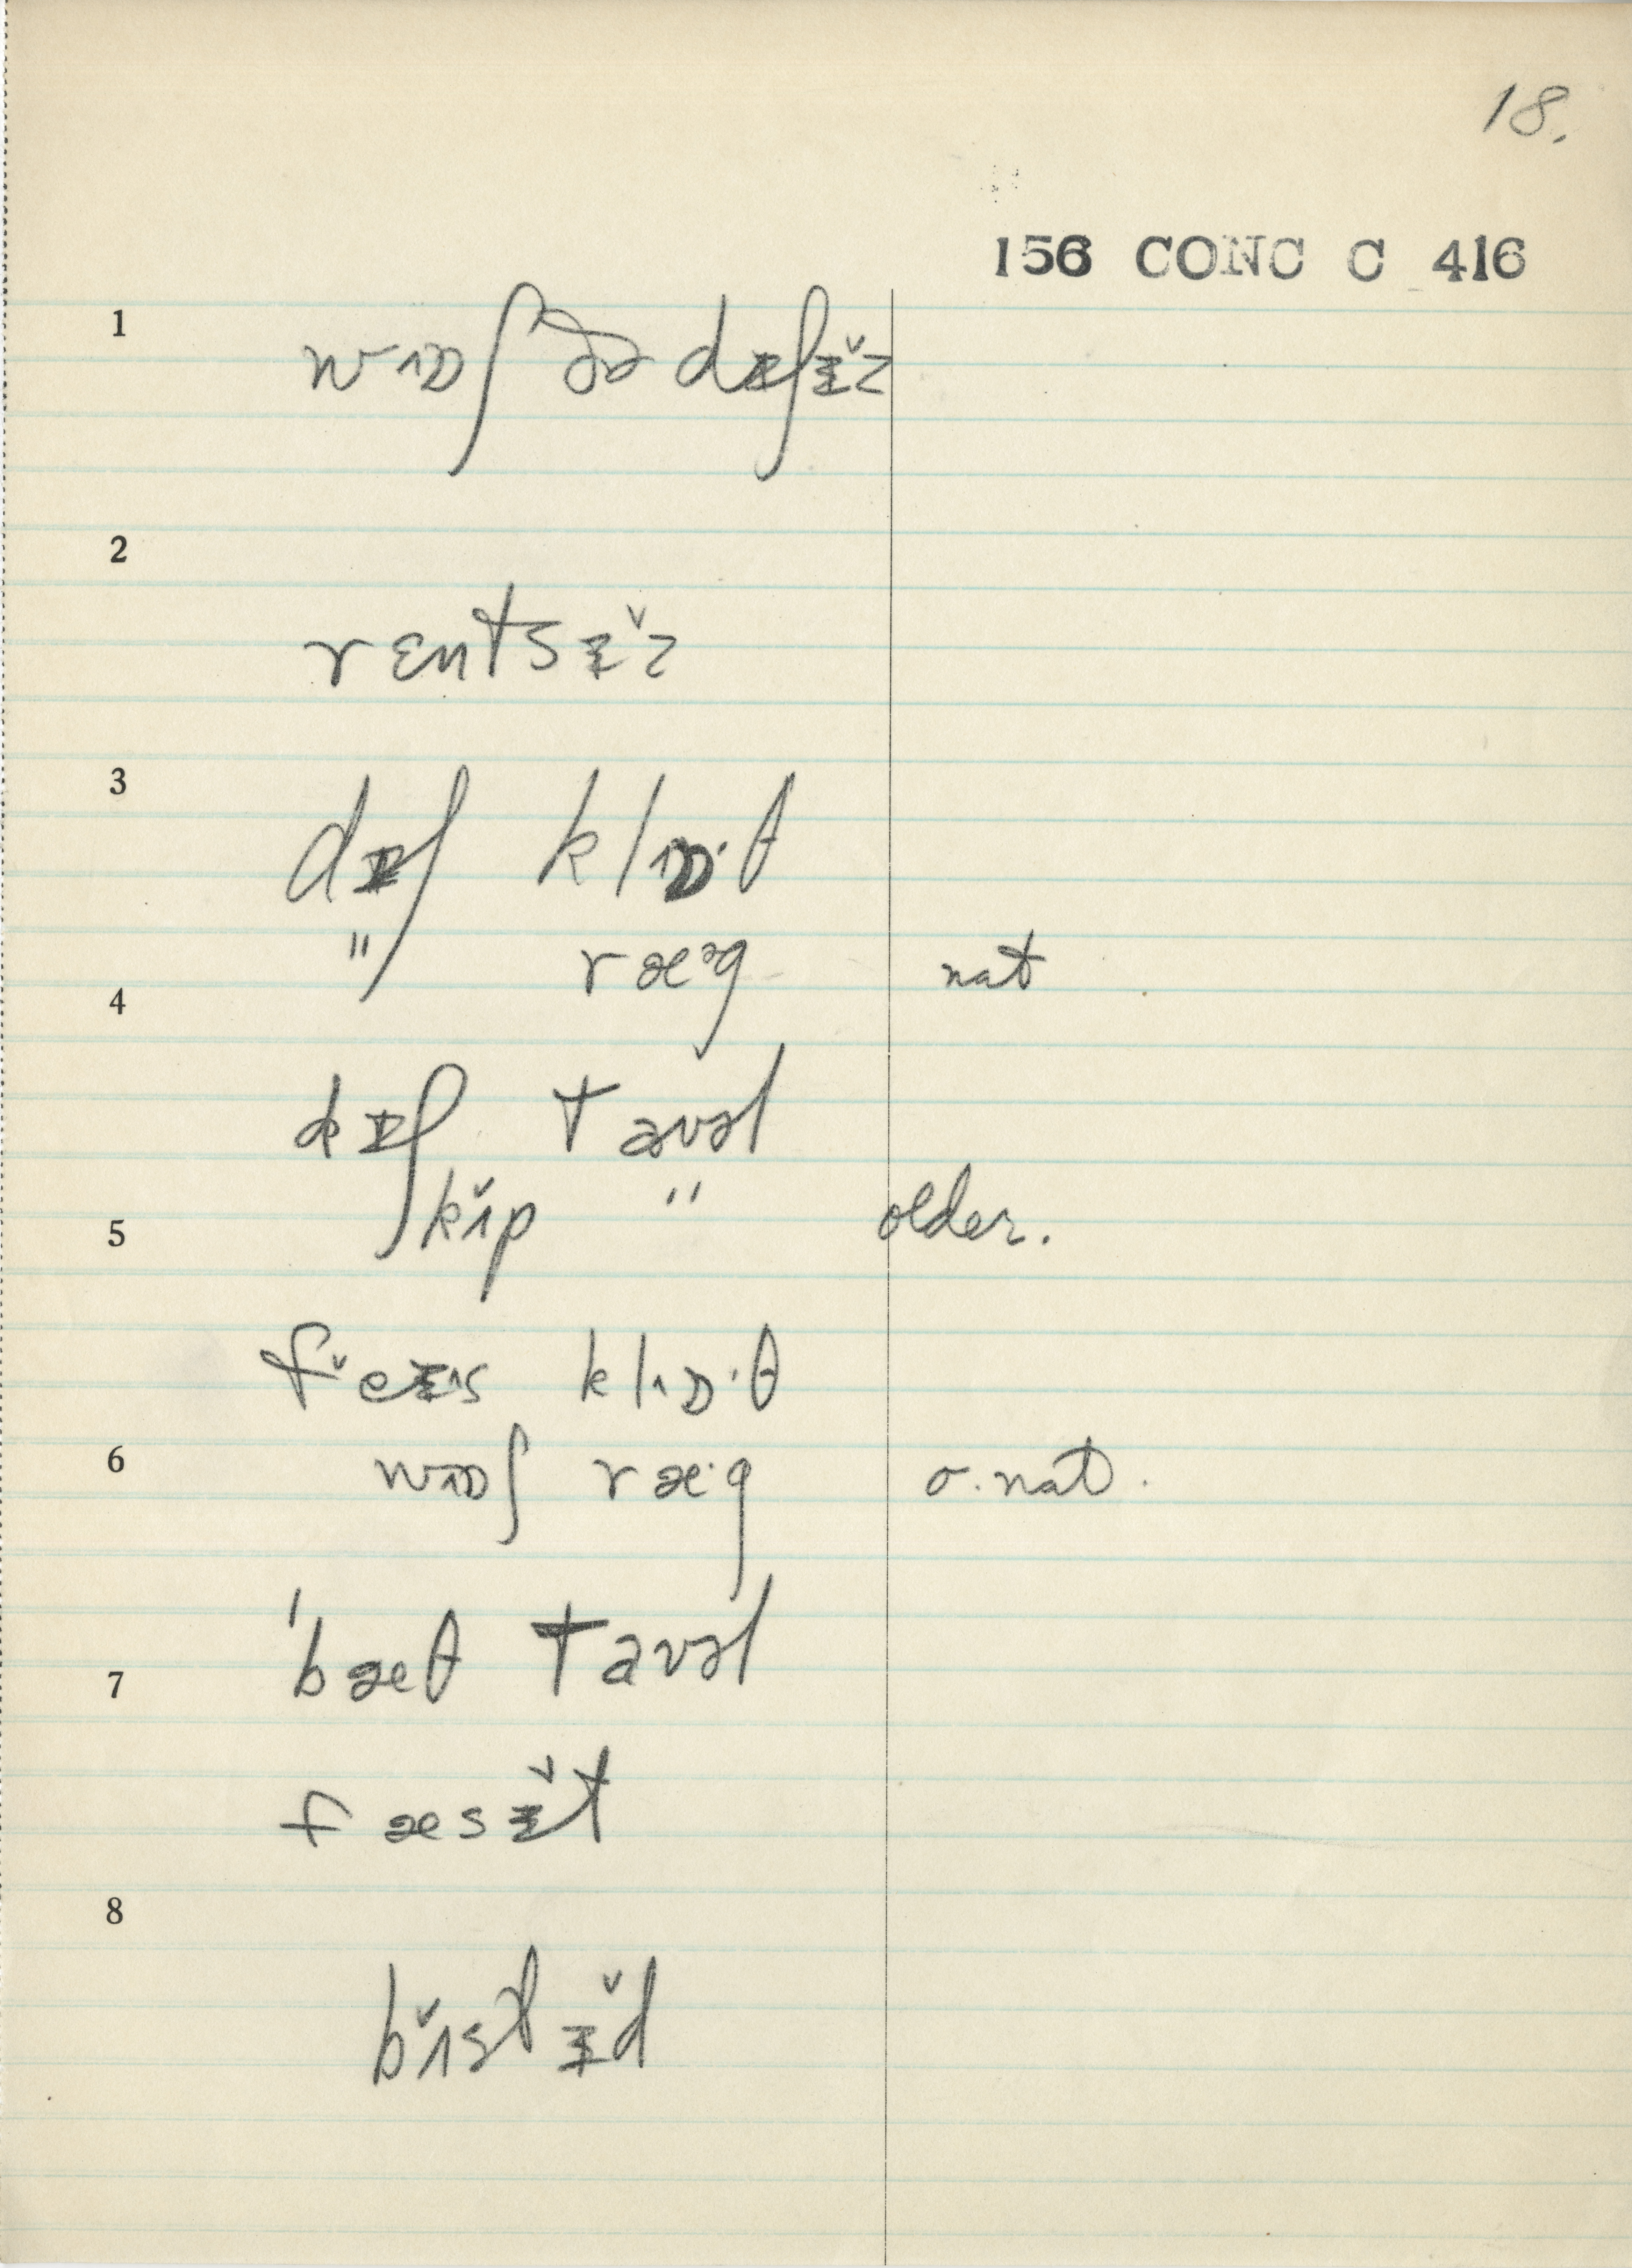 18.
156 CONC C 416
1 wɒʃ ðə dɪʃɪ̆z
2
rɛntsɪ̆z
3
dɪʃ klɒ·θ
" ræᵊg nat
4
dɪʃ tavəl
kɪ̆p " older.
5
feɪs klɒ·θ
6 wɒʃ ræ·g o. nat.
'bæθ tavəl
7
fæsɪ̆t
8
bɪ̆stɪ̆d